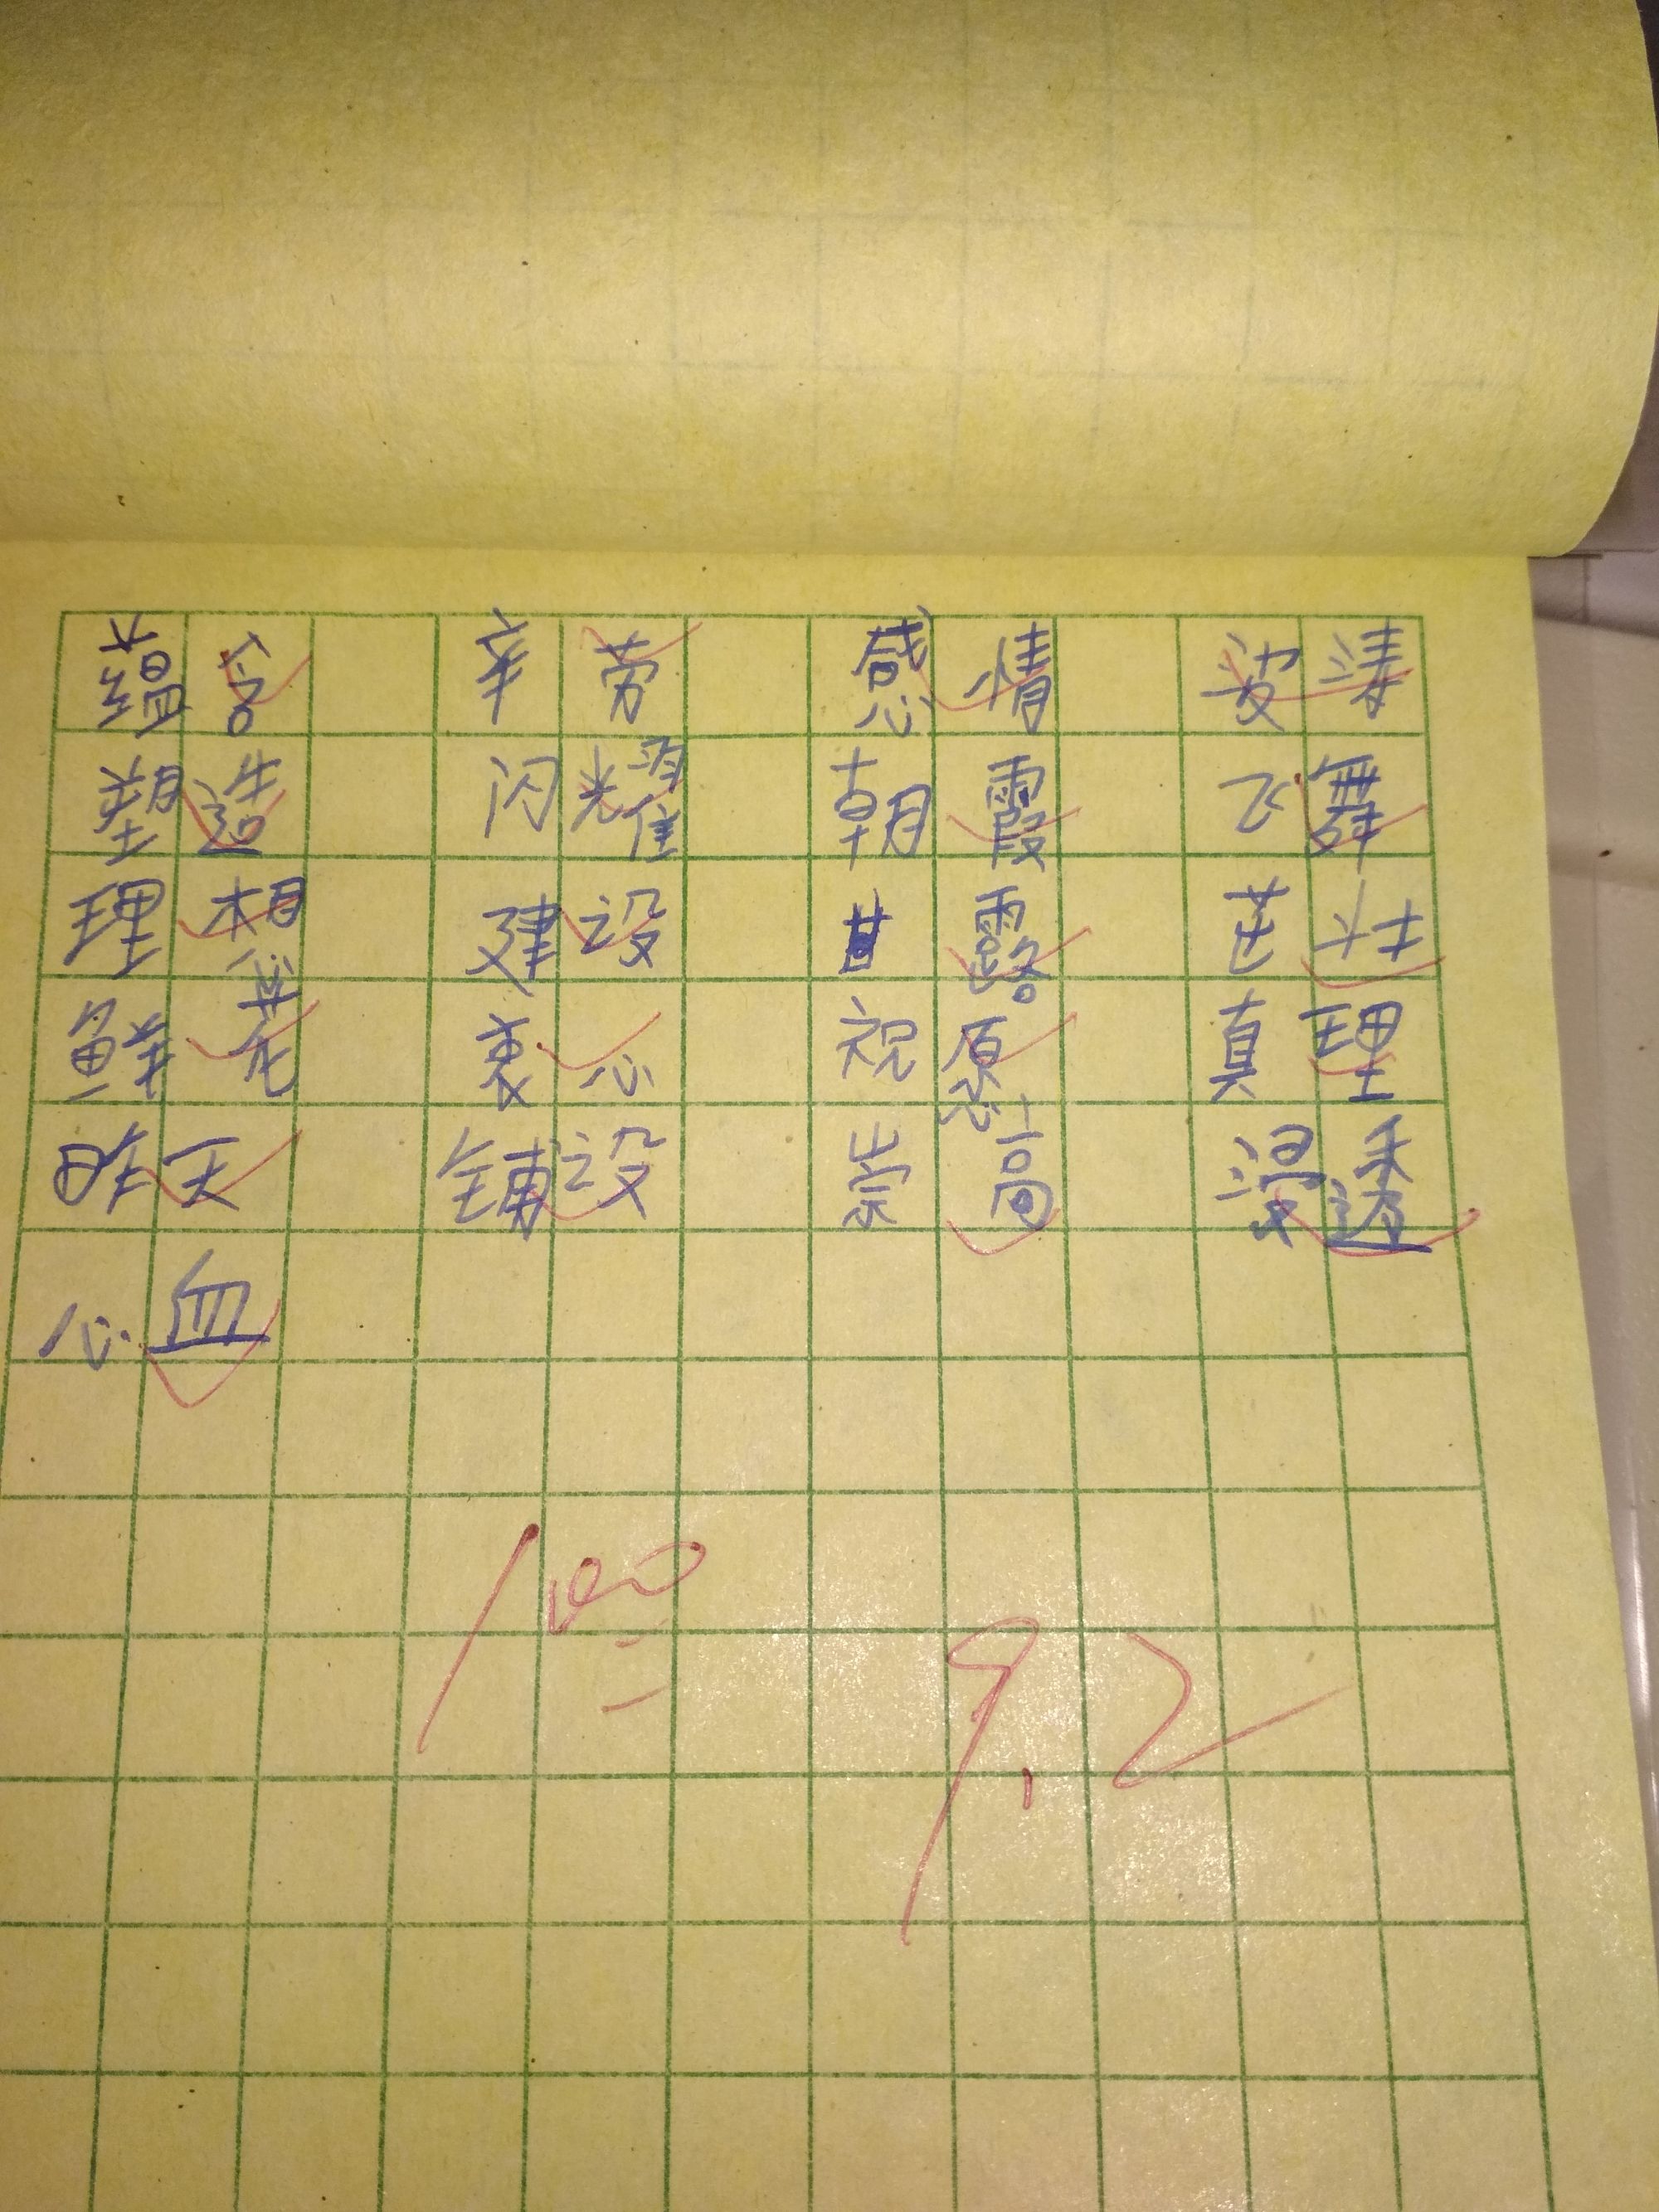 蕴含 辛劳 感情 婆娑
塑造 闪耀 朝霞 飞舞
理想 建设 甘露 茁壮
鲜花 衷心 祝愿 真理
昨天 铺设 崇高 浸透
心血
100
9.2